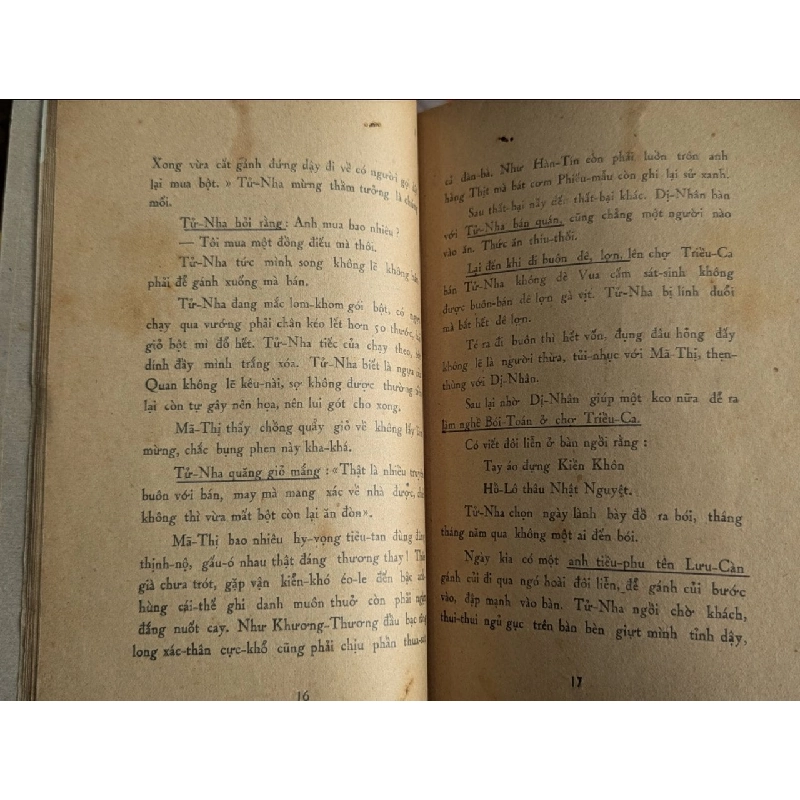 Xong vừa cất gánh đứng dậy đi về có người gọi
lại mua bột. » Tử-Nha mừng thầm tưởng là
mối.
Tử-Nha hỏi rằng : Anh mua bao nhiêu ?
— Tôi mua một đồng điếu mà thôi.
Tử-Nha tức mình song không lẽ không
phải để gánh xuống mà bán.
Tử-Nha đang mắc lom-khom gói bột, có
chạy qua vướng phải chân kéo lết hơn 50 thước,
giỏ bột mì đổ hết. Tử-Nha tiếc của chạy theo,
dính đầy mình trắng xóa. Tử-Nha biết là ngựa
Quan không lẽ kêu-nài, sợ không được thường
lại còn tự gây nên họa, nên lui gót cho xong.
Mã-Thị thấy chồng quẩy giỏ về không
mừng, chắc bụng phen này kha-khá.
Tử-Nha quăng giỏ mắng : «Thật là nhiều
buôn với bán, may mà mang xác về nhà được,
không thì vừa mất bột còn lại ăn đòn».
Mã-Thị bao nhiêu hy-vọng tiêu-tan đùng đùng
thịnh-nộ, gấu-ó nhau thật đáng thương thay !
già chưa trót, gặp vận kiển-khó éo-le đến bậc
hùng cái-thế ghi danh muôn thuở còn phải
đắng nuốt cay. Như Khương-Thương đầu bạc
long xác-thân cực-khổ cũng phải chịu phần
16
cả đàn-bà. Như Hàn-Tín còn phải luồn trôn anh
hàng Thịt mà bát cơm Phiếu-mẫu còn ghi lại sử xanh.
Sau thất-bại này đến thất-bại khác. Dị-Nhân bàn
với Tử-Nha bán quán, cũng chẳng một người nào
vào ăn. Thức ăn thiu-thối.
Lại đến khi đi buôn dê, lợn, lên chợ Triều-Ca
bán Tử-Nha không dè Vua cấm sát-sinh không
được buôn-bán dê lợn gà vịt. Tử-Nha bị lính đuổi
mà bắt hết dê lợn.
Té ra đi buôn thì hết vốn, đụng đâu hỏng đấy
không lẽ là người thừa, tủi-nhục với Mã-Thị, thẹn-
thùng với Dị-Nhân.
Sau lại nhờ Dị-Nhân giúp một keo nữa để ra
làm nghề Bói-Toán ở chợ Triều-Ca.
Có viết đôi liễn ở bàn ngồi rằng :
Tay áo dựng Kiền Khôn
Hồ-Lô thâu Nhật Nguyệt.
Tử-Nha chọn ngày lành bày đồ ra bói, tháng
tháng năm qua không một ai đến bói.
Ngày kia có một anh tiều-phu tên Lưu-Càn
gánh củi đi qua ngó hoài đôi liễn, để gánh củi bước
vào, đập mạnh vào bàn. Tử-Nha ngồi chờ khách,
thui-thui ngủ gục trên bàn bèn giựt mình tỉnh dậy,
17